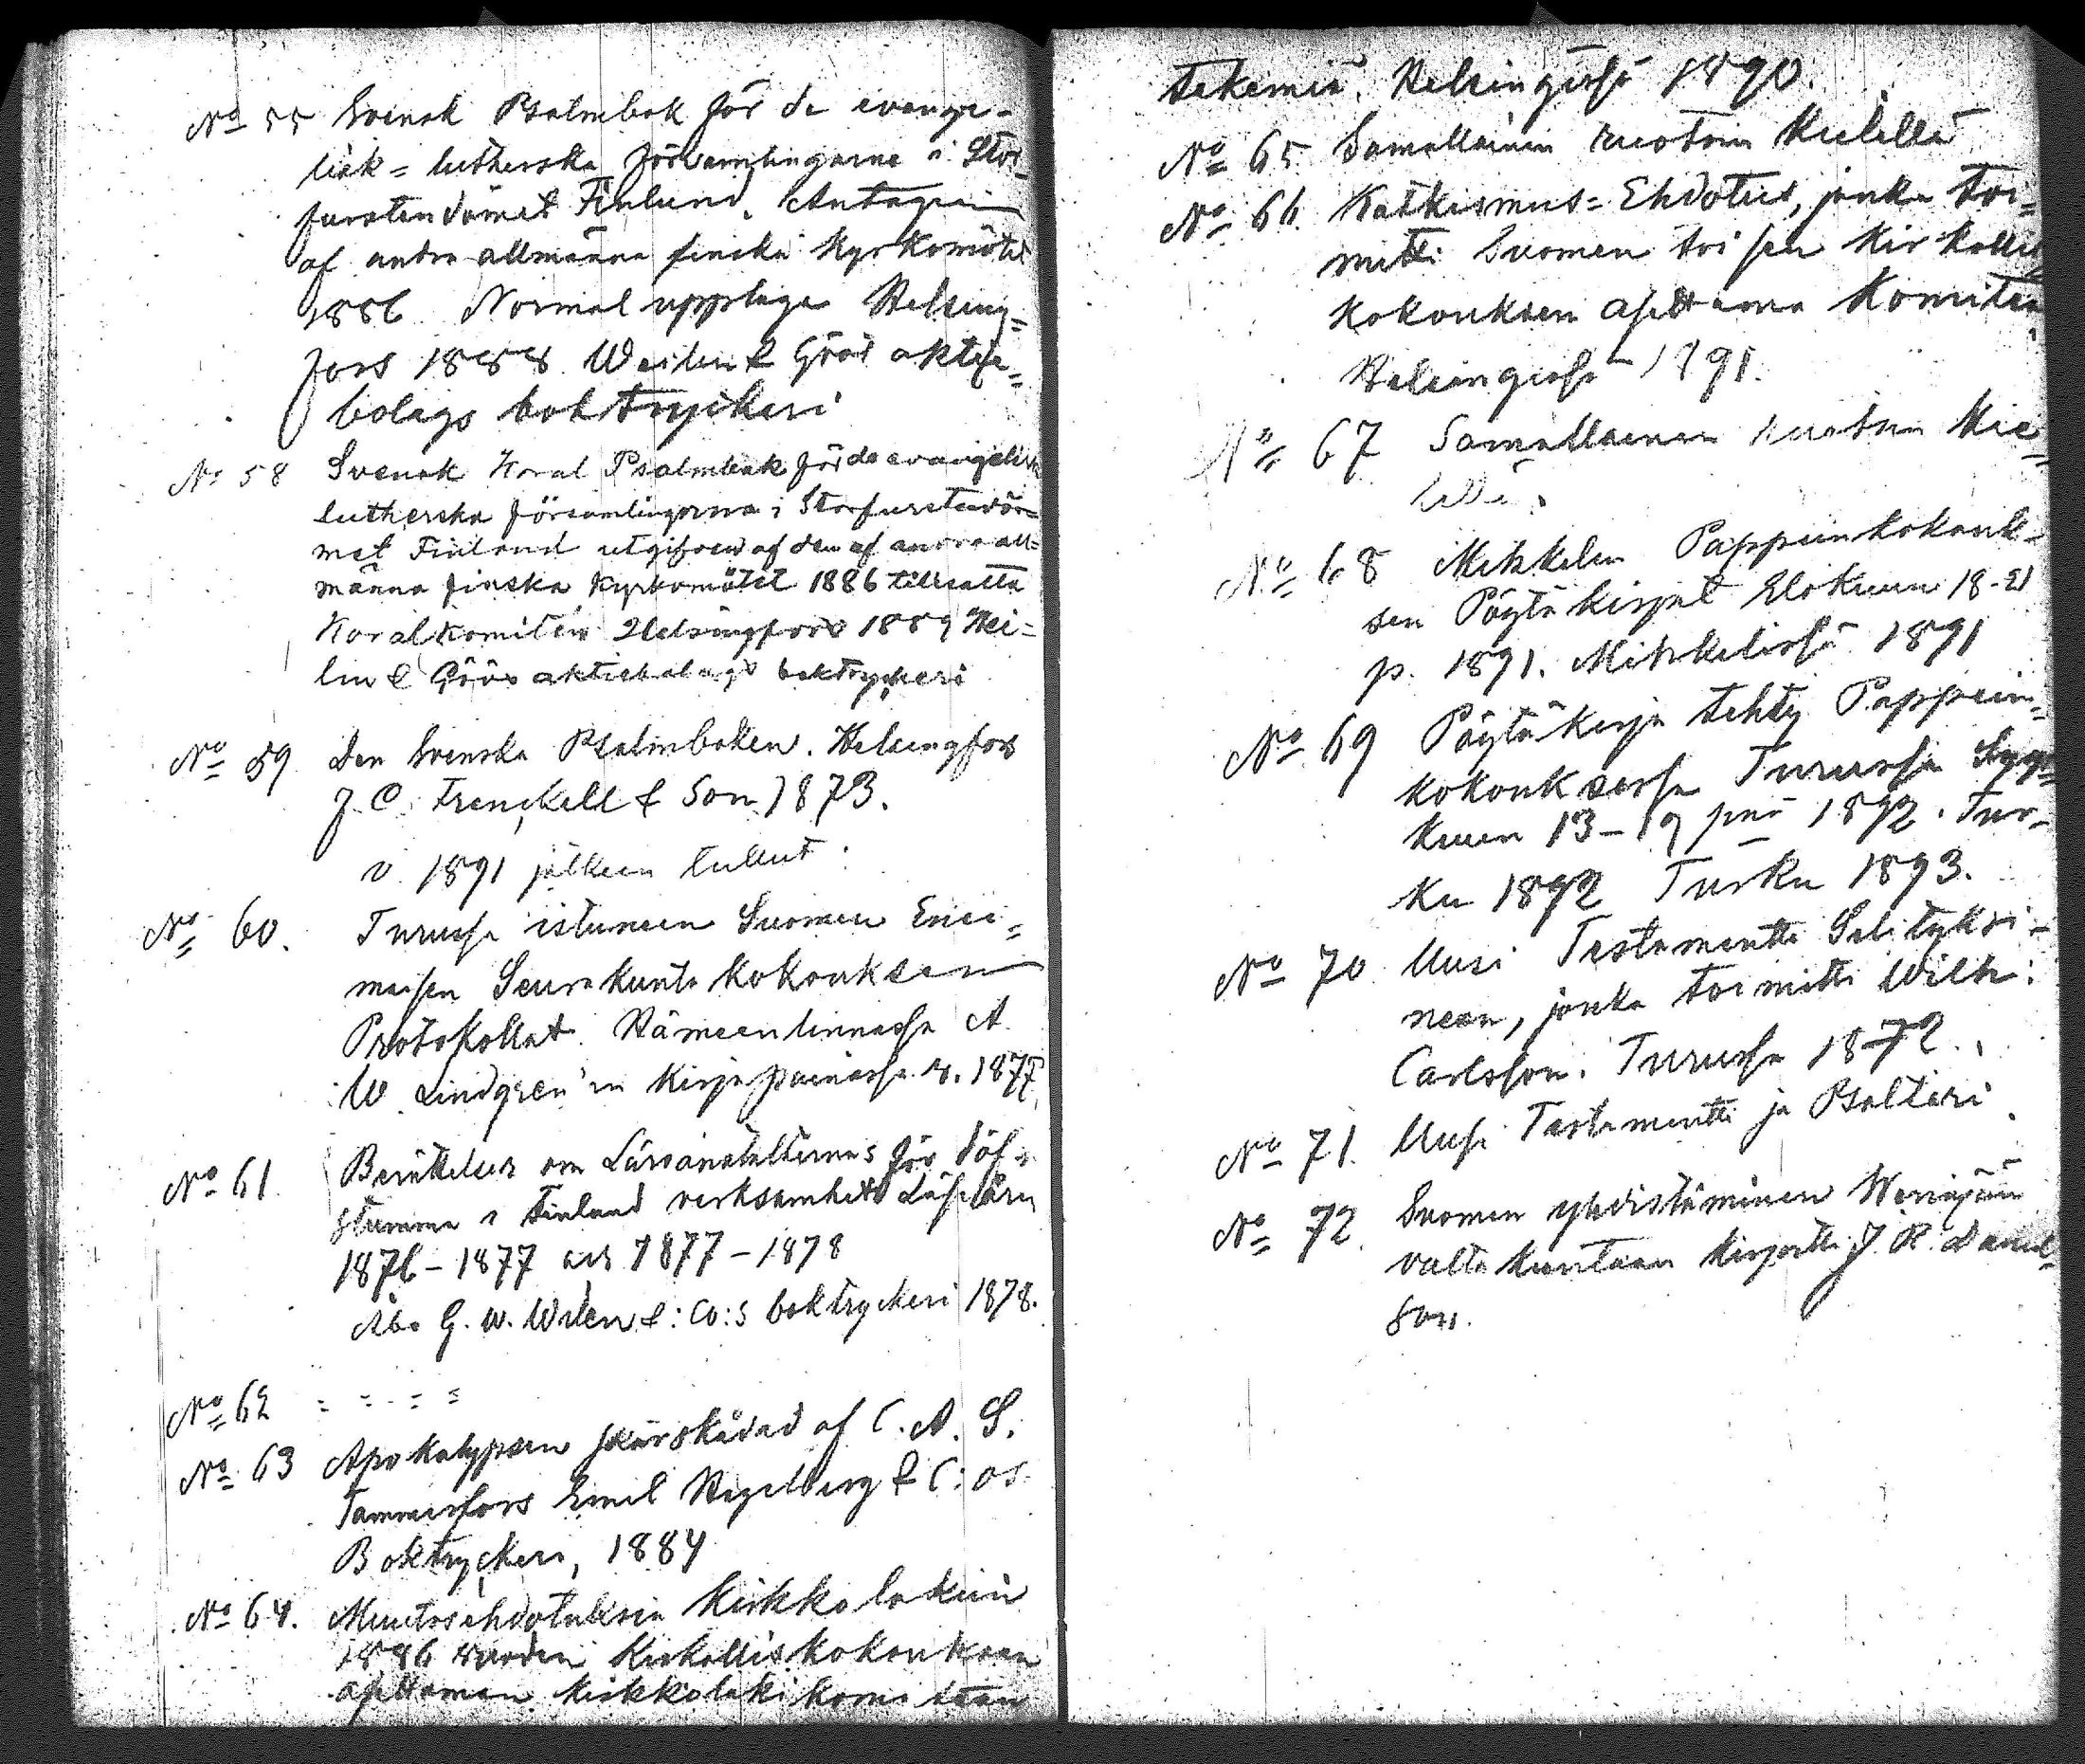 No 55 Svensk Psalmbok för de evange-
lisk=lutherska församlingarna i Stor-
furstendömet Finland. Antagen
af andra allmänna finska Kyrkomötet
1886 Normal upplaga Helsing=
fors 1888 Weilin & Göös aktie=
bolags boktryckeri
No 58 Svensk Koral Psalmbok för de evangelisk
lutherska församlingarna i Storfurstendö=
met Finland utgifven af den af andra all=
männa finska kyrkomötet 1886 tillsatta
Koralkomitén Helsingfors 1889 Wei=
lin & Göös aktiebolags boktryckeri
No 59 Den Svenska Psalmboken. Helsingfors
J. C. Frenckell & Son 1873.
v. 1891 jälkeen tullut.
No 60. Turussa istuneen Suomen Ensi=
maisen Seurakunta Kokouksen
Protokollat. Hämeenlinnassa A.
W. Lindgren'in Kirjapainossa v. 1877.
No 61 Berättelser om Läroanstalternas för döf-
stumma i Finland verksamhet Läseåren
1876-1877 och 1877-1878
Åbo G. W. Wilen &: Co:s boktryckeri 1878.
No 62 = = = =
No 63 Apokalypsen skärskådad af C. A. S.
Tammerfors Emil Hagelberg & C:os
Boktryckeri, 1884
No 64. Muutosehdotuksia Kirkkolakiin
1886 vuoden Kirkolliskokouksen
asettaman kirkkolakikomitean
tekemiä. Helsingissä 1890.
No 65 Samallainen ruotsin kielellä
No 66. Katkismus=Ehdotus, jonka toi=
mitti Suomen toisen Kirkollis
kokouksen asettama Komitea
Helsingissä 1891.
No 67 Samallainen ruotsin kie=
lellä.
No 68 Mikkelin Pappeinkokouk-
sen Pöytäkirjat Elokuun 18-21
p. 1891. Mikkelissä 1891
No 69 Pöytäkirja tehty Pappein=
kokouksessa Turussa Syys=
kuun 13-19 pnä 1892. Tur-
ku 1892 Turku 1893.
No 70 Uusi Testamentti Selityksi-
neen, jonka toimitti Wilh:
Carlsson. Turussa 1872.
No 71. Uusi Testamentti ja Psaltari.
No 72. Suomen yhdistäminen Wenäjän
valtakuntaan kirjoitti J. R. Daniel=
son.